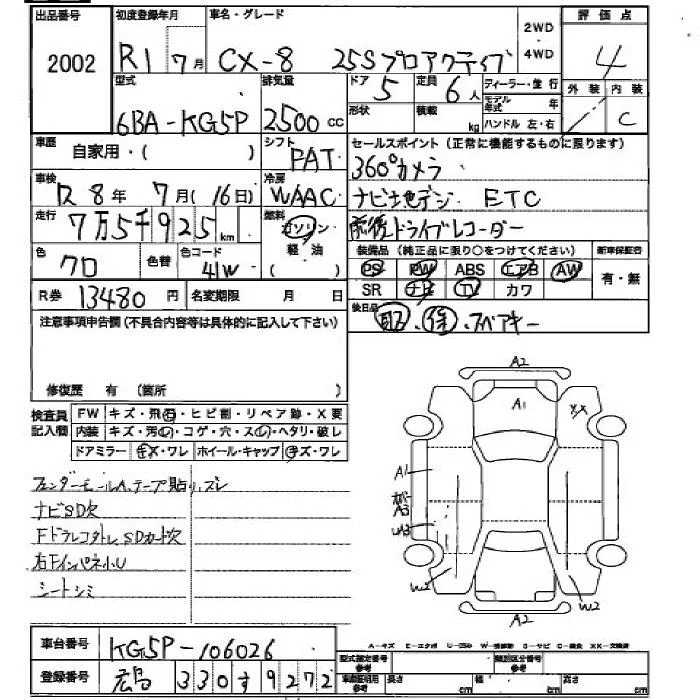 出品番号 初度登録年月 車名・グレード 2WD 評価点
2002 R1 7月 CX-8 25Sプロアクティブ ・4WD 4
型式 排気量 ドア 定員 ディーラー・並行 外装 内装
6BA-KG5P 2500cc 5 6人 モデル年式 年 C
形状 積載 kg ハンドル 左・右
車歴 自家用・( ) シフト セールスポイント(正常に機能するものに限ります)
PAT 360°カメラ
車検 R8年 7月(16日) 冷房 WAAC ナビ地デジ ETC
走行 7万5千925km 燃料 ガソリン・軽油 前後ドライブレコーダー
色 クロ 色替 色コード 41W 装備品(純正品に限り○をつけてください) 新車保証書
PS PW ABS エアB AW 有・無
R券 13480円 名変期限 月 日 SR ナビ TV カワ
後日品 取.保.スペアキー
注意事項申告欄(不具合内容等は具体的に記入して下さい)
修復歴 有(箇所 )
検査員記入欄 FW キズ・飛石・ヒビ割・リペア跡・X要
内装 キズ・汚レ・コゲ・穴・スレ・ヘタリ・破レ
ドアミラー キズ・ワレ ホイール・キャップ キズ・ワレ
フェンダーモールA.テープ貼り.ズレ
ナビSD欠
FドラレコタトレSDカード欠
右Fインパネ小U
シートシミ
A2
A1
XX
A1
A3
U3
W2
W2
A2
車台番号 KG5P-106026
登録番号 広島 330す9272
A-キズ E-エクボ U-凹み W-補修跡 S-サビ C-腐食 XX-交換済
型式指定番号 参考 類別区分番号 参考
車庫証明用 参考 長さ cm 幅 cm 高さ cm